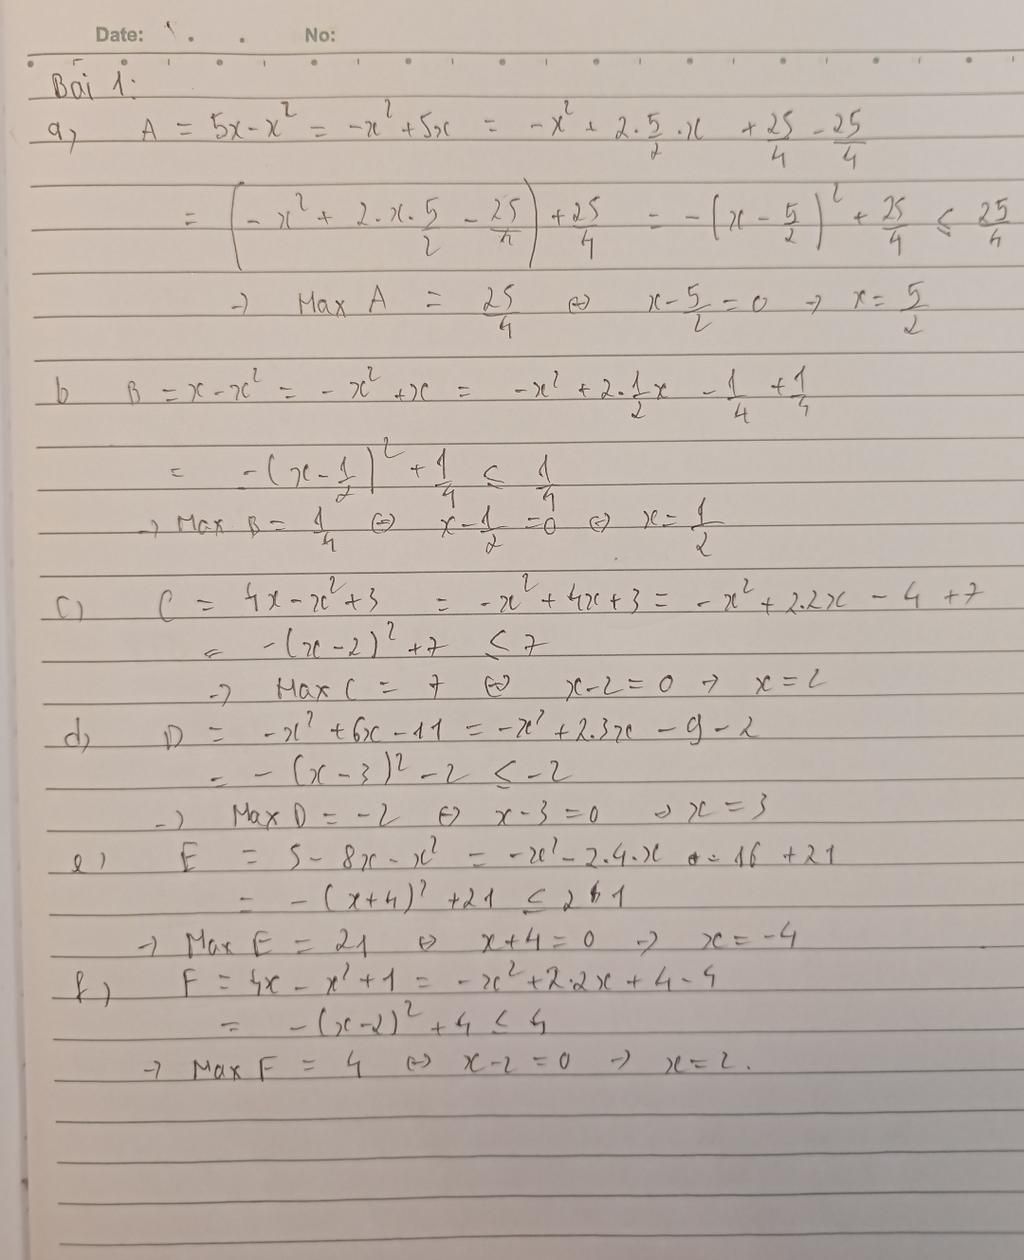 Date: No:
Bài 1:
a, A = 5x - x² = -x² + 5x = -x² + 2.5/2.x + 25/4 - 25/4
= (-x² + 2.x.5/2 - 25/4) + 25/4 = -(x - 5/2)² + 25/4 ≤ 25/4
→ Max A = 25/4 ⇔ x - 5/2 = 0 → x = 5/2
b B = x - x² = -x² + x = -x² + 2.1/2x - 1/4 + 1/4
= -(x - 1/2)² + 1/4 ≤ 1/4
→ Max B = 1/4 ⇔ x - 1/2 = 0 ⇔ x = 1/2
c) C = 4x - x² + 3 = -x² + 4x + 3 = -x² + 2.2x - 4 + 7
= -(x - 2)² + 7 ≤ 7
→ Max C = 7 ⇔ x - 2 = 0 → x = 2
d, D = -x² + 6x - 11 = -x² + 2.3x - 9 - 2
= -(x - 3)² - 2 ≤ -2
→ Max D = -2 ⇔ x - 3 = 0 → x = 3
e) E = 5 - 8x - x² = -x² - 2.4.x - 16 + 21
= -(x + 4)² + 21 ≤ 21
→ Max E = 21 ⇔ x + 4 = 0 → x = -4
f) F = 4x - x² + 1 = -x² + 2.2x + 4 - 4
= -(x - 2)² + 4 ≤ 4
→ Max F = 4 ⇔ x - 2 = 0 → x = 2.